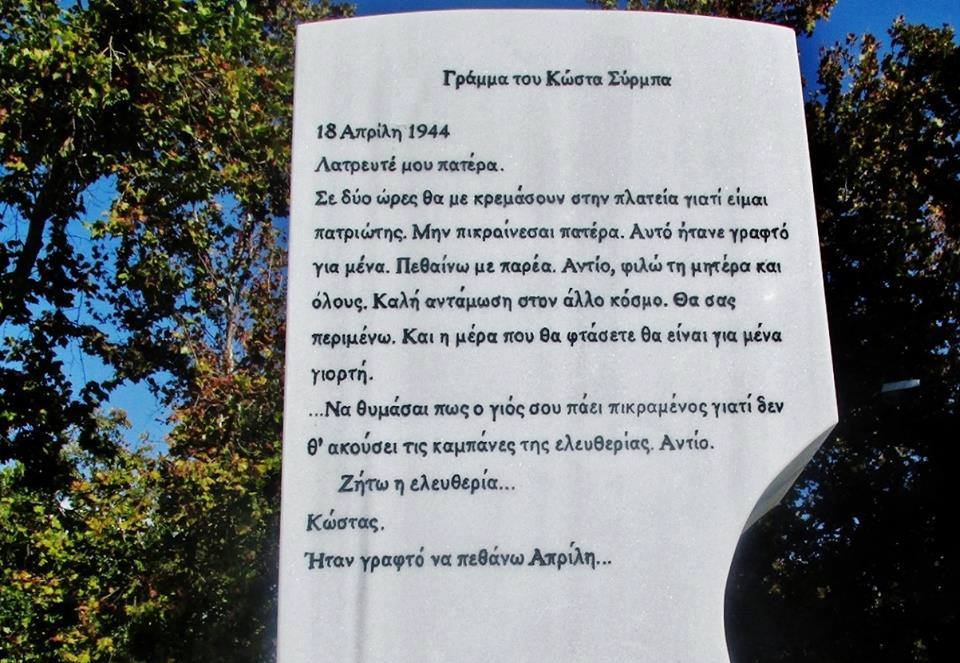 Γράμμα του Κώστα Σύρμπα
18 Απρίλη 1944
Λατρευτέ μου πατέρα.
Σε δύο ώρες θα με κρεμάσουν στην πλατεία γιατί είμαι
πατριώτης. Μην πικραίνεσαι πατέρα. Αυτό ήτανε γραφτό
για μένα. Πεθαίνω με παρέα. Αντίο, φιλώ τη μητέρα και
όλους. Καλή αντάμωση στον άλλο κόσμο. Θα σας
περιμένω. Και η μέρα που θα φτάσετε θα είναι για μένα
γιορτή.
...Να θυμάσαι πως ο γιός σου πάει πικραμένος γιατί δεν
θ' ακούσει τις καμπάνες της ελευθερίας. Αντίο.
Ζήτω η ελευθερία...
Κώστας.
Ήταν γραφτό να πεθάνω Απρίλη...